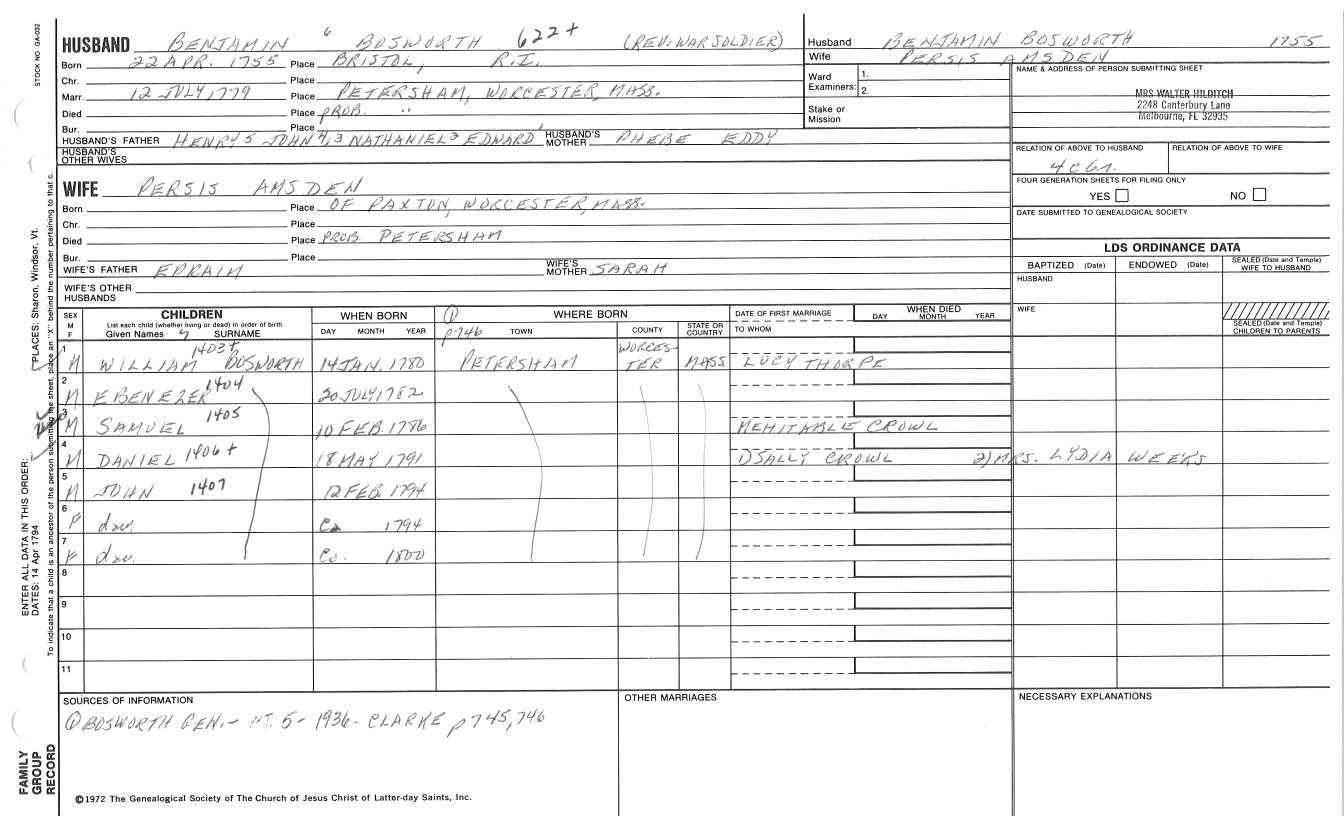 STOCK NO GA-032
HUSBAND BENJAMIN 6 BOSWORTH 622+ (REV. WAR SOLDIER)
Born 22 APR. 1755 Place BRISTOL, R.I.
Chr. Place
Marr. 12 JULY, 1779 Place PETERSHAM, WORCESTER, MASS.
Died Place PROB. "
Bur. Place
HUSBAND'S FATHER HENRY 5 JOHN 4,3 NATHANIEL 2 EDWARD 1 HUSBAND'S MOTHER PHEBE EDDY
HUSBAND'S OTHER WIVES
WIFE PERSIS AMSDEN
Born Place OF PAXTON, WORCESTER, MASS.
Chr. Place
Died Place PROB. PETERSHAM
Bur. Place
WIFE'S FATHER EPRAIM WIFE'S MOTHER SARAH
WIFE'S OTHER HUSBANDS
Husband BENJAMIN BOSWORTH 1755
Wife PERSIS AMSDEN
Ward Examiners: 1. 2.
Stake or Mission
NAME & ADDRESS OF PERSON SUBMITTING SHEET
MRS WALTER HILDITCH
2248 Canterbury Lane
Melbourne, FL 32935
RELATION OF ABOVE TO HUSBAND RELATION OF ABOVE TO WIFE
FOUR GENERATION SHEETS FOR FILING ONLY
YES NO
DATE SUBMITTED TO GENEALOGICAL SOCIETY
LDS ORDINANCE DATA
BAPTIZED (Date) ENDOWED (Date) SEALED (Date and Temple) WIFE TO HUSBAND
HUSBAND
WIFE
SEALED (Date and Temple) CHILDREN TO PARENTS
SEX M F CHILDREN WHEN BORN WHERE BORN DATE OF FIRST MARRIAGE WHEN DIED
List each child (whether living or dead) in order of birth
Given Names 7 SURNAME DAY MONTH YEAR ① p746 TOWN COUNTY STATE OR COUNTRY TO WHOM DAY MONTH YEAR
1 M WILLIAM 1403+ BOSWORTH 14 JAN. 1780 PETERSHAM WORCESTER MASS LUCY THORPE
2 M EBENEZER 1404 20 JULY, 1782
3 M SAMUEL 1405 10 FEB. 1786 MEHITABLE CROWL
4 M DANIEL 1406+ 18 MAY 1791 1) SALLY CROWL 2) MRS. LYDIA WEEKS
5 M JOHN 1407 12 FEB. 1794
6 F dau. Ca 1794
7 F dau. Ca. 1800
8
9
10
11
SOURCES OF INFORMATION
① BOSWORTH GEN. - PT. 5 - 1936 - CLARKE p745, 746
OTHER MARRIAGES
NECESSARY EXPLANATIONS
©1972 The Genealogical Society of The Church of Jesus Christ of Latter-day Saints, Inc.
FAMILY GROUP RECORD
ENTER ALL DATA IN THIS ORDER:
DATES: 14 Apr 1794
PLACES: Sharon, Windsor, Vt.
To indicate that a child is an ancestor of the person submitting the sheet, place an "X" behind the number pertaining to that c.